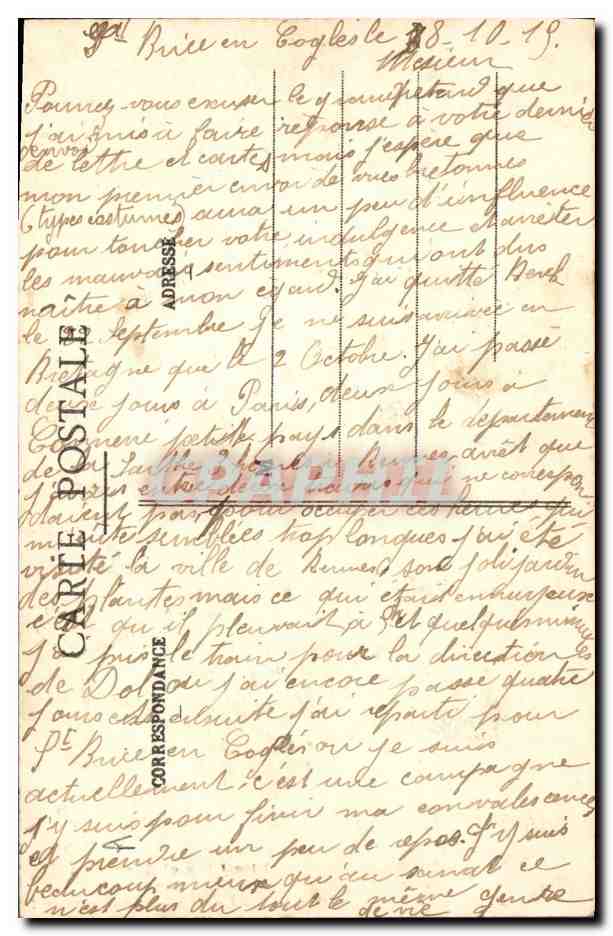 St Brice en Coglès le 18-10-19.
Mesieur
Pourrez-vous excuser le grand retard que
j'ai mis à faire reponse à votre dernier
envoi
de lettre et cartes mais j'espère que
mon premier envoi de vues bretonnes
(types costumes) aura un peu d'influence
pour toucher votre indulgence et arrêter
les mauvais sentiments qui ont dus
naître à mon egard. J'ai quitté Berck
le Septembre je ne suis arrivée en
Bretagne que le 2 Octobre. J'ai passé
deux jours à Paris, deux jours à
petit pays dans le département
de la Sarthe à Rennes arrêt que
trains qui ne correspon
daient pas, pour occuper ces heures qui
m'ont semblées trop longues j'ai été
visité la ville de Rennes, son joli jardin
des plantes mais ce qui était ennuyeux
c'est qu'il pleuvait à et quelques minutes
j'ai pris le train pour la direction
de Dol où j'ai encore passé quatre
jours et ensuite j'ai reparti pour
St Brice en Coglès où je suis
actuellement, c'est une campagne
j'y suis pour finir ma convalescence
et prendre un peu de repos. J'y suis
beaucoup mieux qu'au sanat ce
n'est plus du tout le même genre
de vie
CARTE POSTALE
CORRESPONDANCE
ADRESSE
CPAPHIL